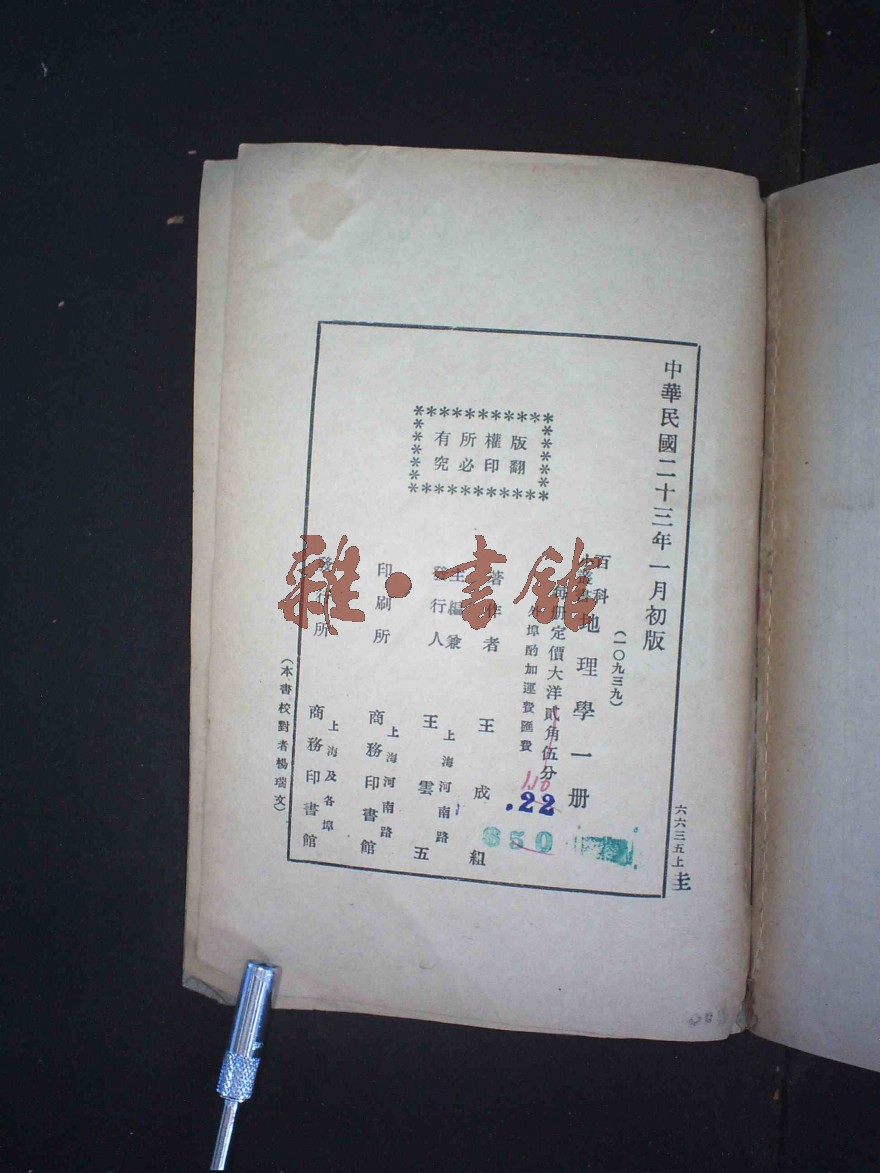 中華民國二十三年一月初版
六六三五上 圭
版權所有
翻印必究
(一〇九三九)
百科小叢書 地理學一册
每册定價大洋貳角伍分
外埠酌加運費匯費
著作者 王成組
主編兼發行人 上海河南路 王雲五
印刷所 上海河南路 商務印書館
發行所 上海及各埠 商務印書館
(本書校對者楊瑞文)
.22
850
雜·書館